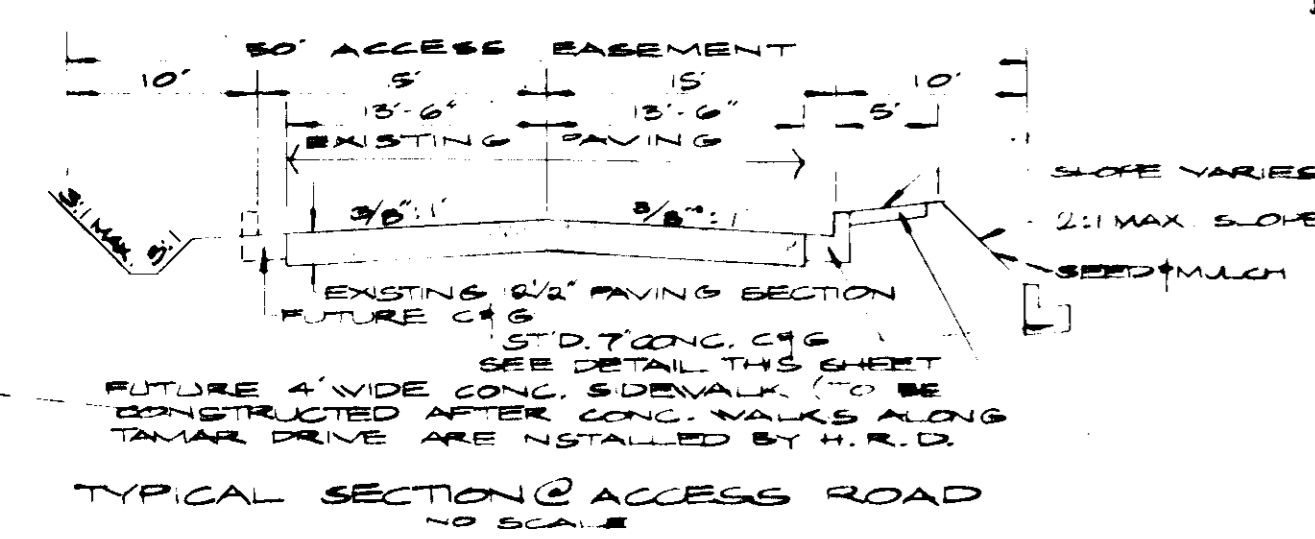 50' ACCESS EASEMENT
10' 15' 15' 10'
13'-6" 13'-6" 5'
EXISTING PAVING
SLOPE VARIES
3:1 MAX. 3:1 3/8":1' 3/8":1' 2:1 MAX. SLOPE
SEED & MULCH
EXISTING 12 1/2" PAVING SECTION
FUTURE C & G
ST'D. 7" CONC. C & G
SEE DETAIL THIS SHEET
FUTURE 4' WIDE CONC. SIDEWALK (TO BE
CONSTRUCTED AFTER CONC. WALKS ALONG
TAMAR DRIVE ARE INSTALLED BY H.R.D.
TYPICAL SECTION @ ACCESS ROAD
NO SCALE